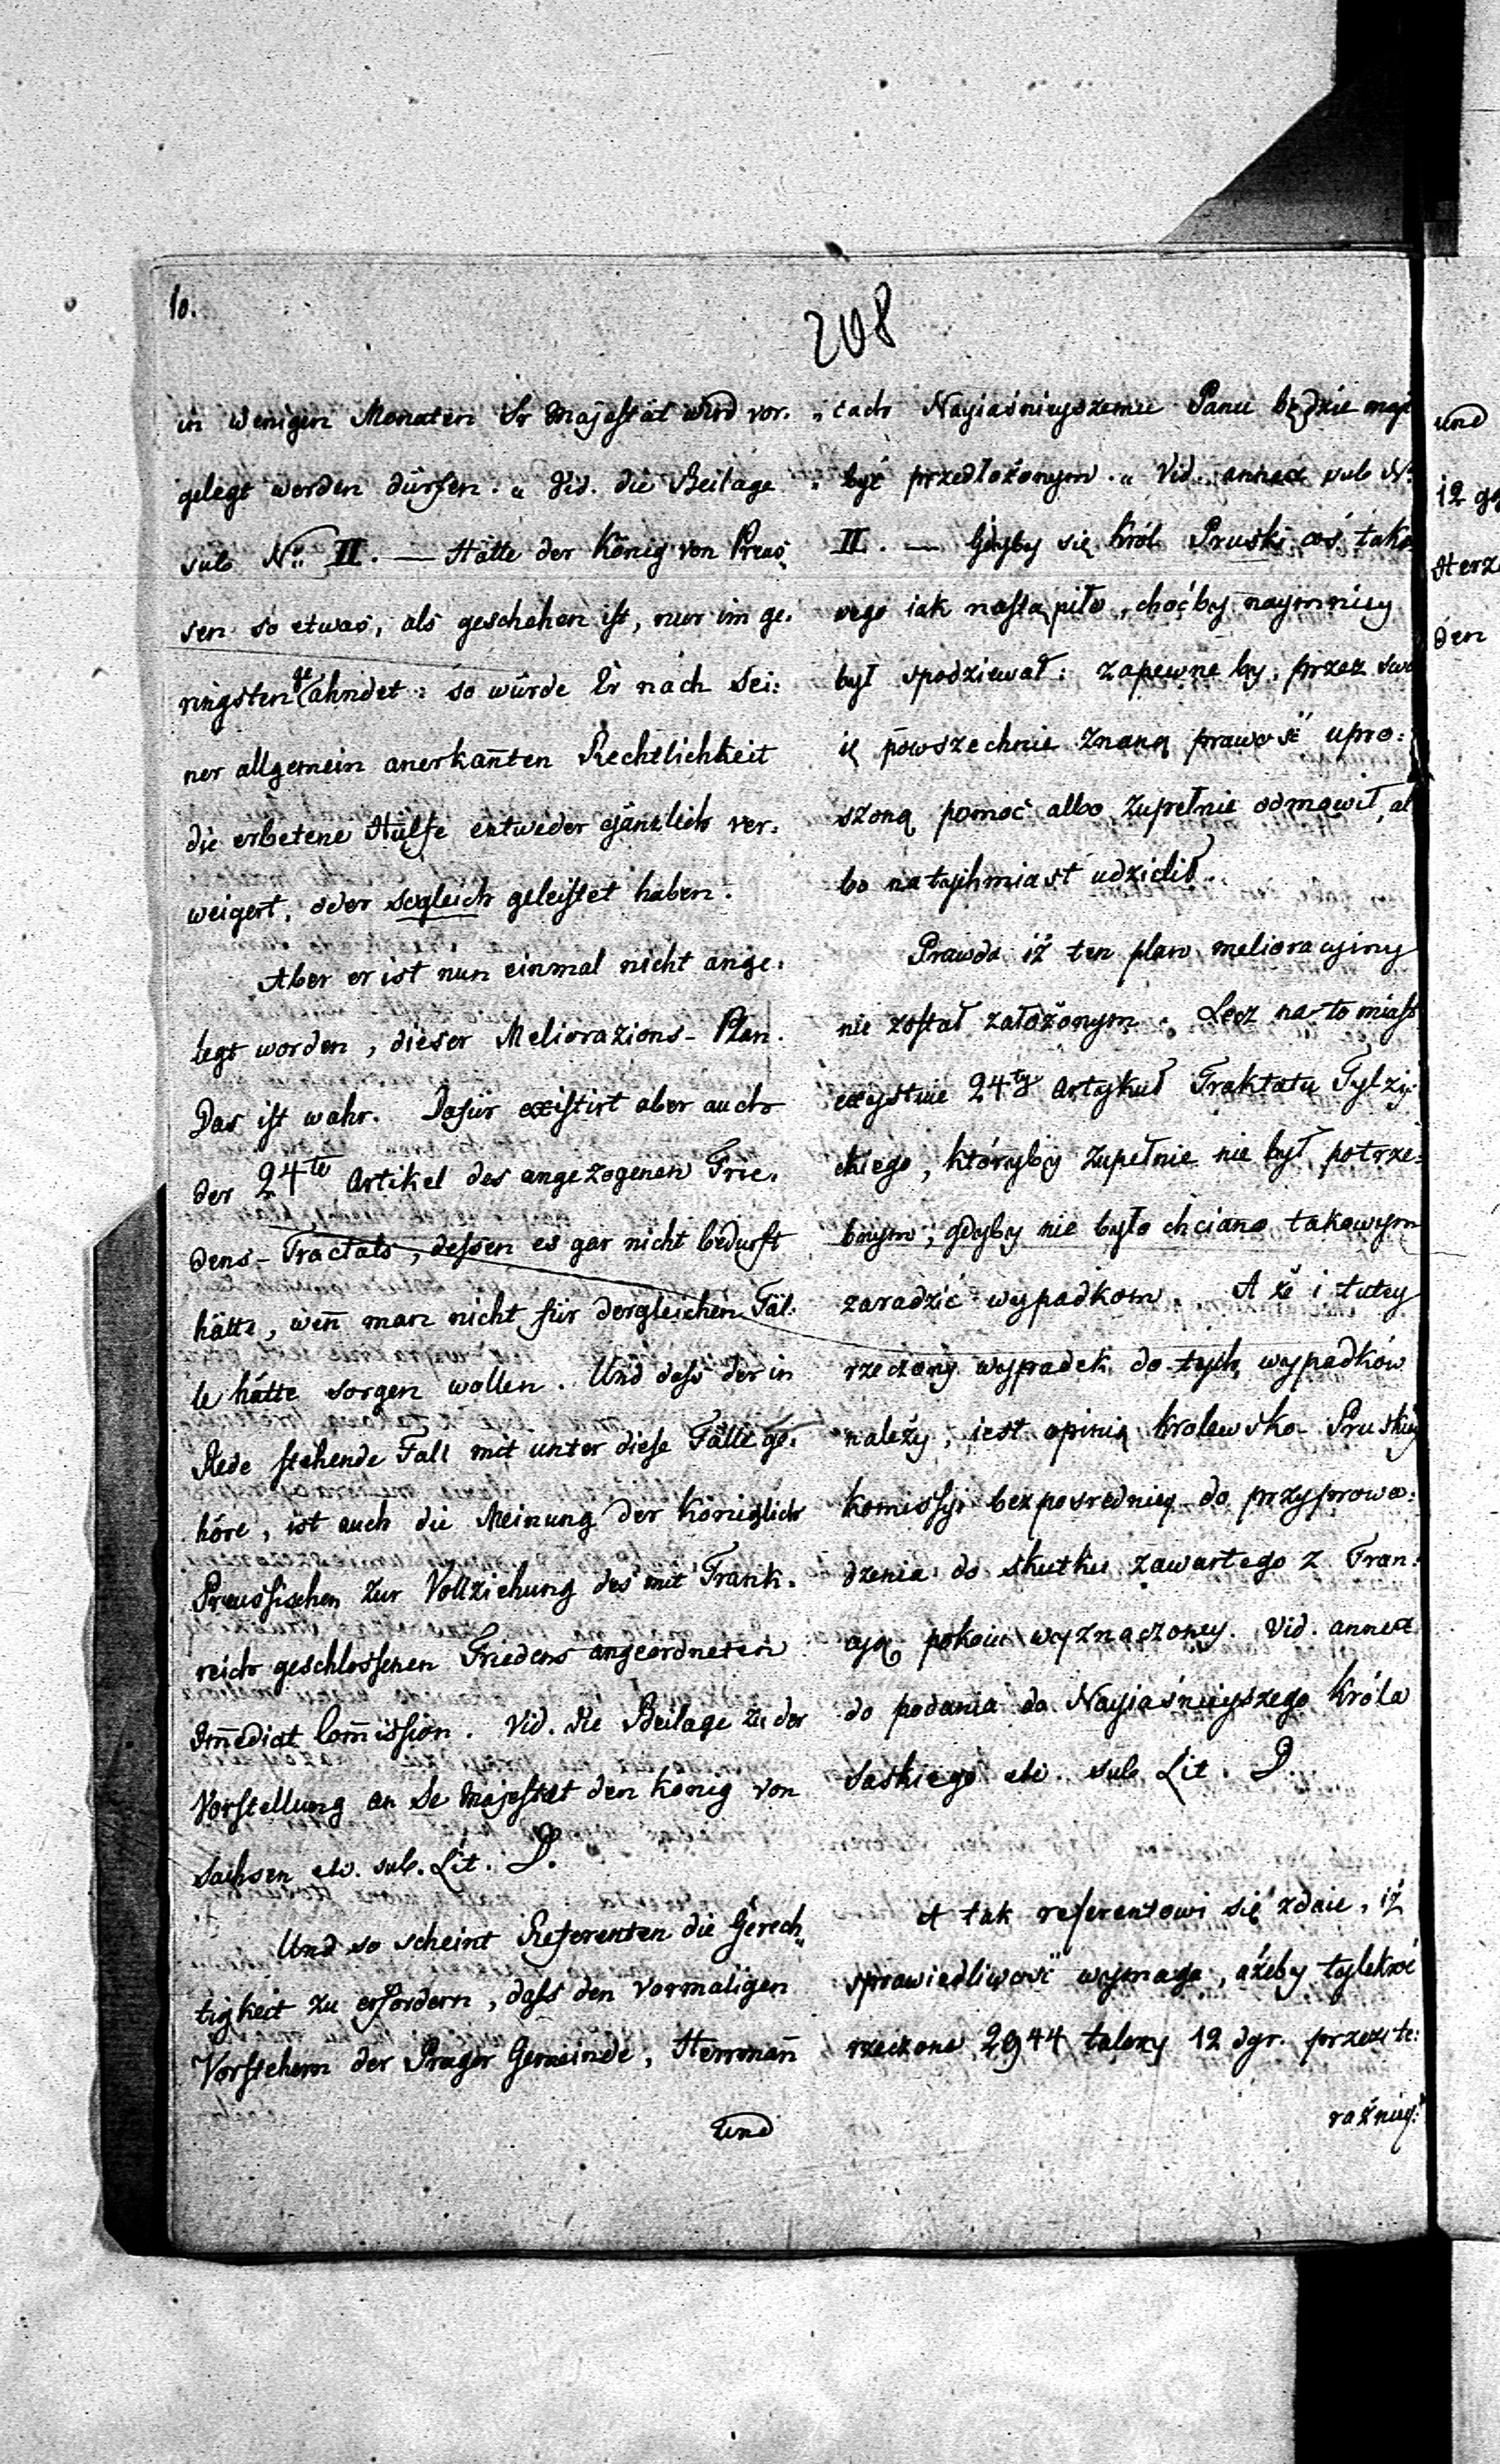 10.
208
in wenigen Monaten Sr Majestät wird vor-
gelegt werden dürfen. „ Vid. die Beilage
sub No: II. — Hätte der König von Preus„
sen so etwas, als geschehen ist, nur im ge-
ringsten geahndet: so würde Er nach Sei:
ner allgemein anerkan̅ten Rechtlichkeit
die erbetene Hülfe entweder gänzlich ver-
weigert, oder sogleich geleistet haben.
Aber er ist nun einmal nicht ange-
legt worden, dieser Meliorazions-Plan.
Das ist wahr. Dafür existirt aber auch
der 24te Artikel des angezogenen Frie-
dens-Tractats, dessen es gar nicht bedurft
hätte, wen̅ man nicht für dergleichen Fäl-
le hätte sorgen wollen. Und dass der in
Rede stehende Fall mit unter diese Fälle ge-
höre, ist auch die Meinung der Königlich
Preussischen zur Vollziehung des mit Frank-
reich geschlossenen Friedens angeordneten
Im̅ediat Com̅ission. Vid. die Beilage zu der
Vorstellung an Se Majestät den König von
Sachsen etc. sub. Lit. D.
Und so scheint Referenten die Gerech„
tigkeit zu erfordern, dass den vormaligen
Vorstehern der Prager Gemeinde, Herrman̅
und
„ cach Nayiaśnieyszemu Panu będzie mógł
„ być przedłożonym. „ Vid. annex sub No
II. — Gdyby się Król Pruski coś tako
wego iak nastąpiło, choćby naymniey
był spodziewał: zapewne by, przez swo
ię powszechnie znaną prawość upro:
szoną pomoc albo zupełnie odmówił, al
bo natychmiast udzielił.
Prawda iż ten plan melioracyiny
nie został założonym. Lecz natomiast
exystuie 24ty Artykuł Traktatu Tylży
ckiego, któryby zupełnie nie był potrze:
bnym, gdyby nie było chciano takowym
zaradzić wypadkom. A że i tutey
rzeczony wypadek do tych wypadków
należy, iest opinią Krolewsko-Pruskiey
Komissyi bezpośredniey do przyprowa:
dzenia do skutku zawartego z Fran:
cyą pokoiu wyznaczoney. Vid. annex
do podania do Nayiaśnieyszego Króla
Saskiego etc. sub Lit. D.
A tak referentowi się zdaie, iż
sprawiedliwość wymaga, ażeby tylekroć
rzeczone 2944 talery 12 dgr. przez te:
raźniey:
und
12 gg
Herz
den